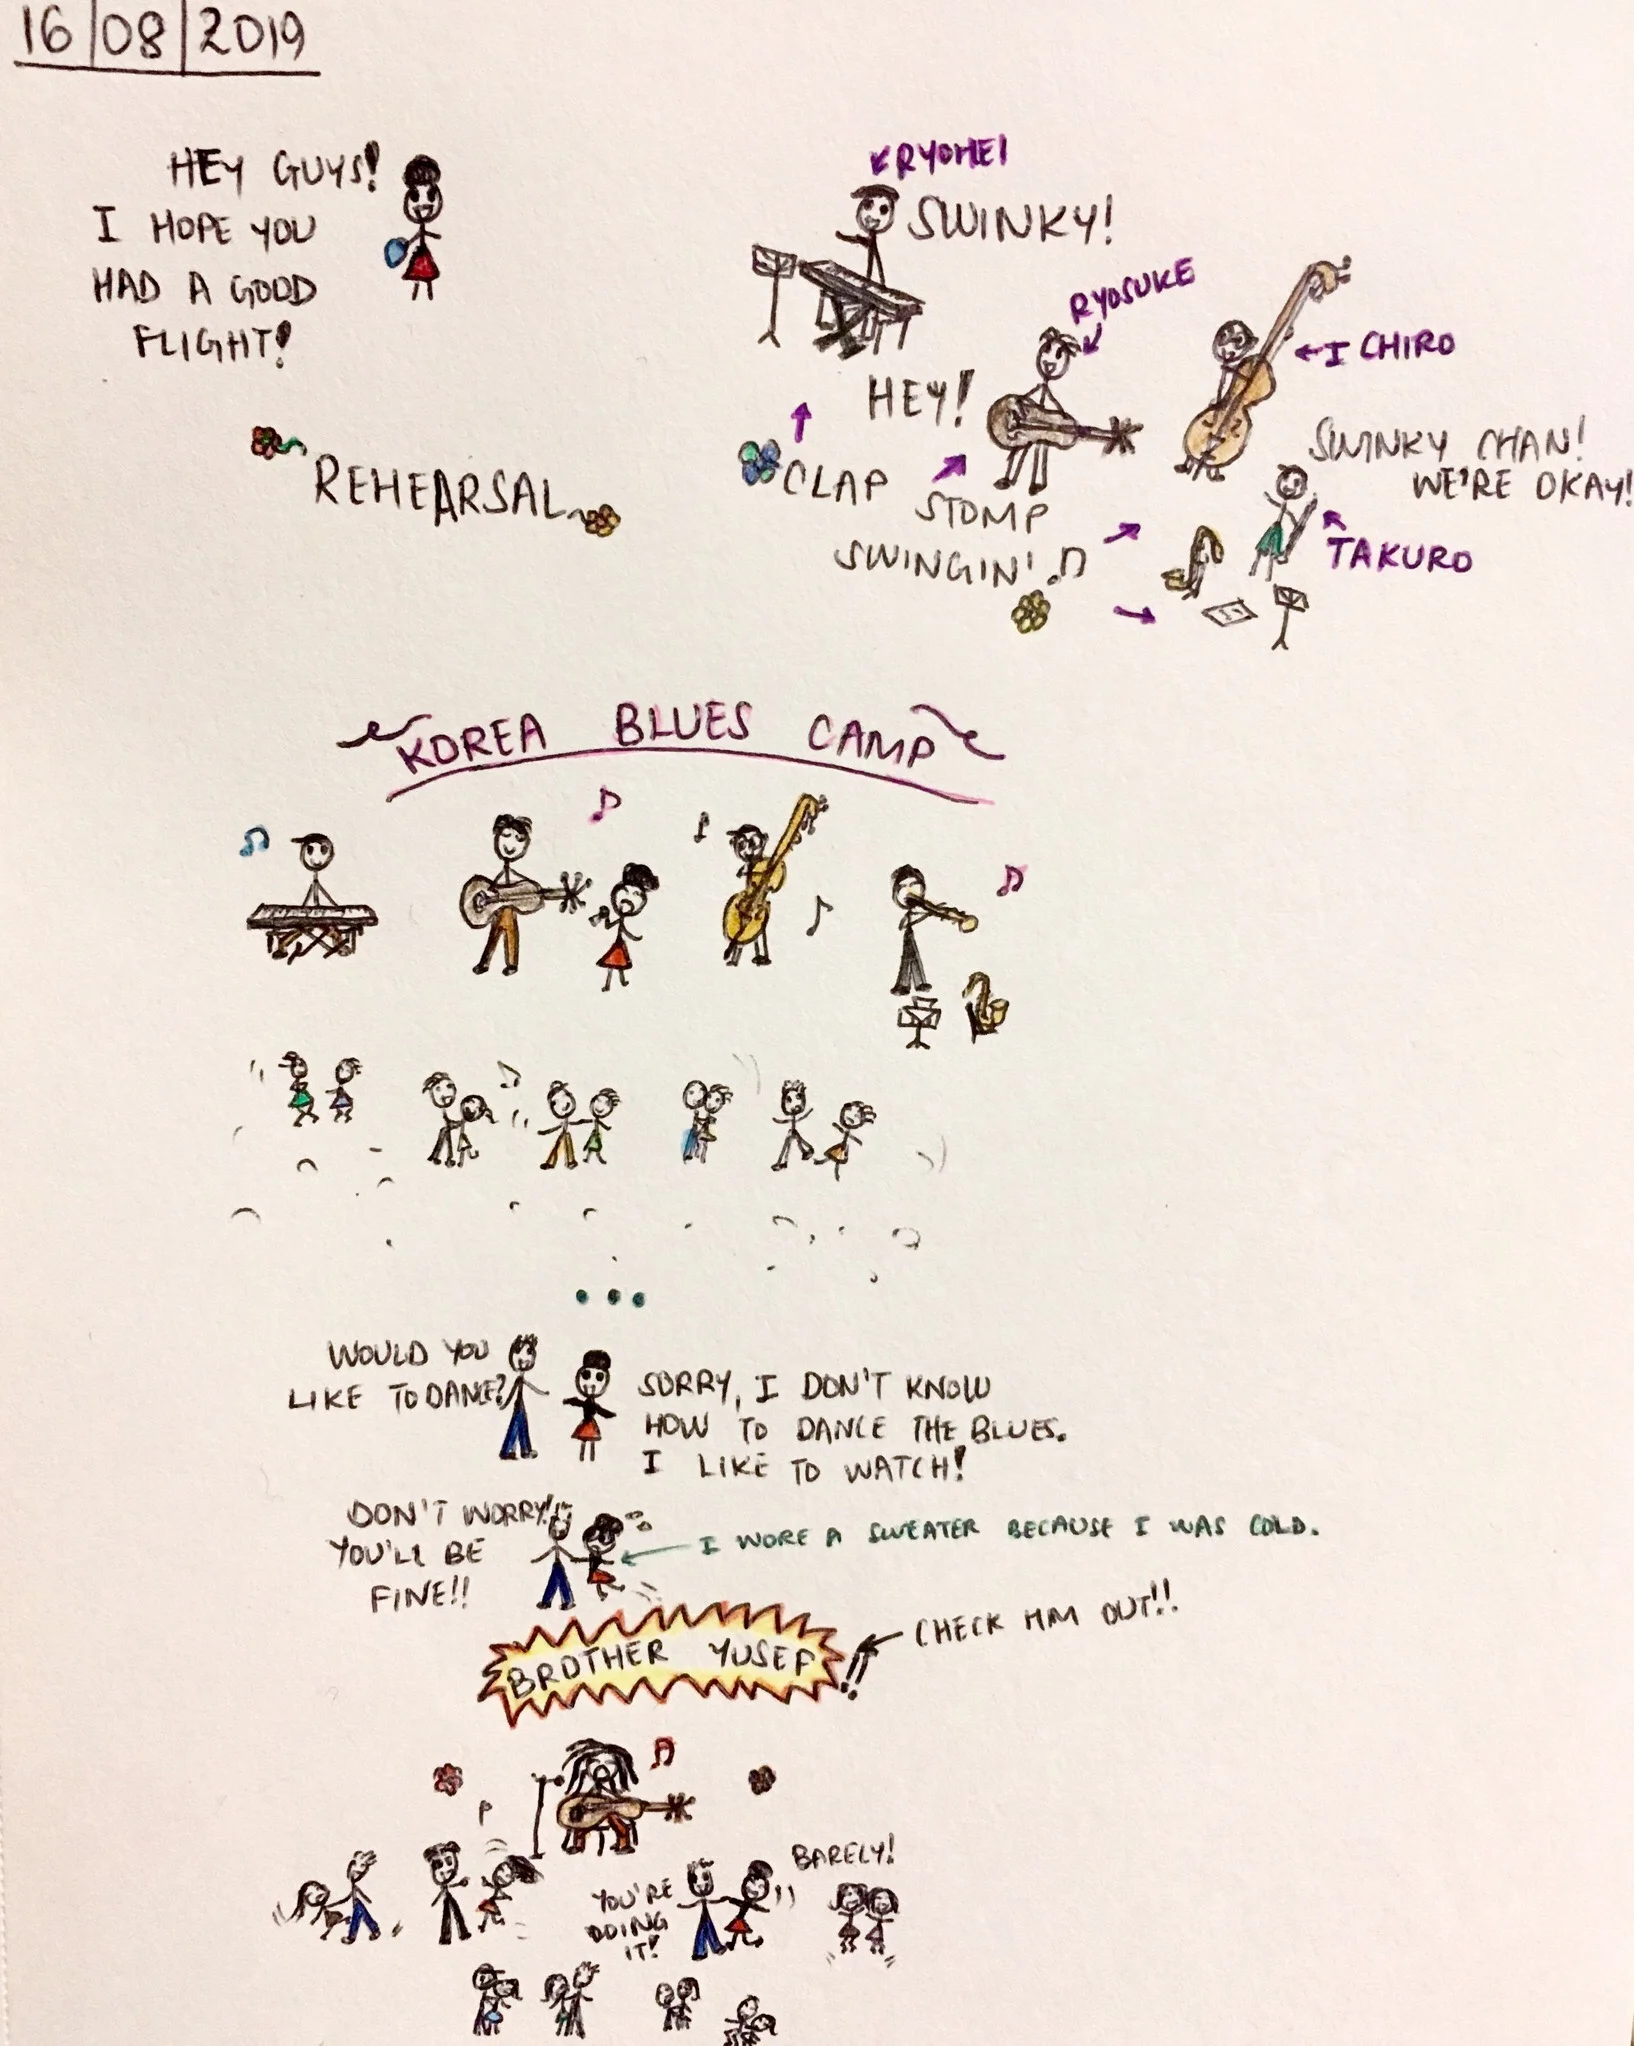 16/08/2019
HEY GUYS!
I HOPE YOU
HAD A GOOD
FLIGHT!
RYOHEI
SWINKY!
RYOSUKE
HEY!
ICHIRO
SWINKY CHAN!
WE'RE OKAY!
TAKURO
REHEARSAL
CLAP
STOMP
SWINGIN'
KOREA BLUES CAMP
...
WOULD YOU
LIKE TO DANCE?
SORRY, I DON'T KNOW
HOW TO DANCE THE BLUES.
I LIKE TO WATCH!
DON'T WORRY!
YOU'LL BE
FINE!!
I WORE A SWEATER BECAUSE I WAS COLD.
BROTHER YUSEF!!
CHECK HIM OUT!!
YOU'RE
DOING
IT!
BARELY!